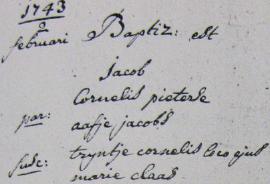 1743
februari Baptiz: est
Jacob
Cornelis pieterse
par: aafje jacobs
susc: tryntje cornelis loco ejus
marie claas